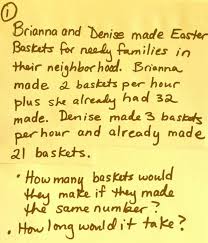 1
Brianna and Denise made Easter
Baskets for needy families in
their neighborhood. Brianna
made 2 baskets per hour
plus she already had 32
made. Denise made 3 baskets
per hour and already made
21 baskets.
• How many baskets would
they make if they made
the same number?
• How long would it take?